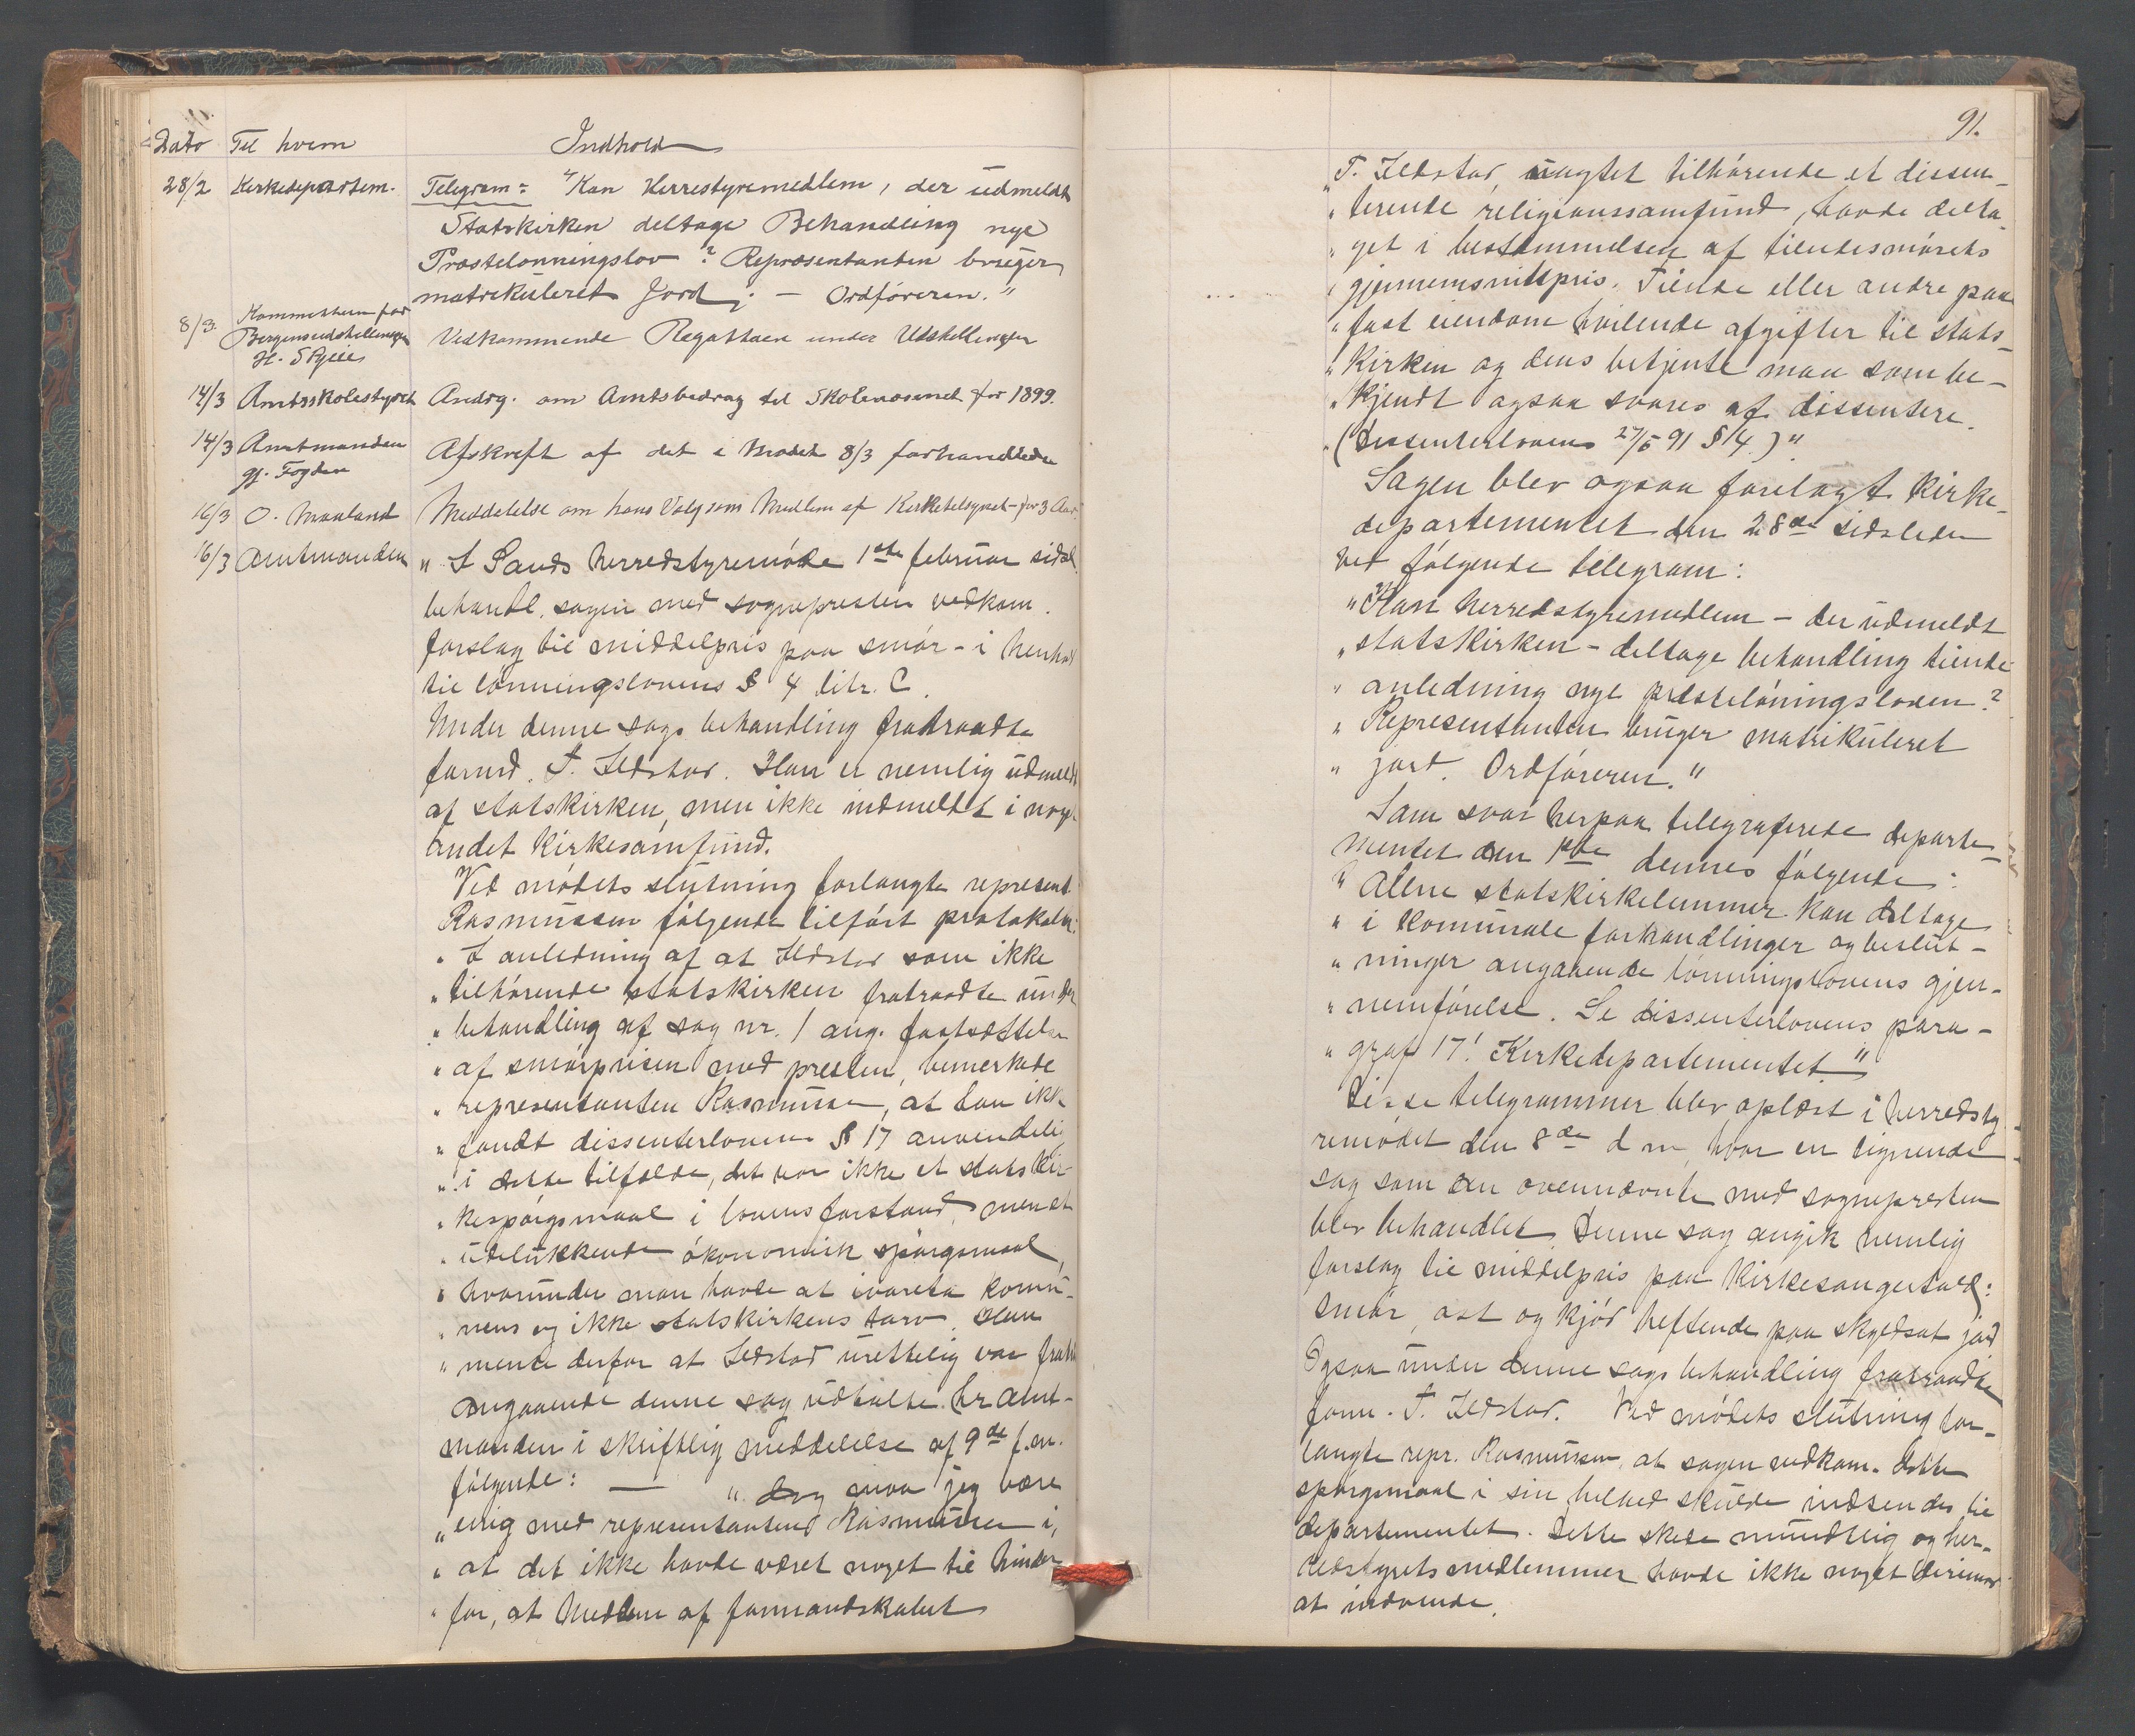 Dato Til hvem Indhold
28/2 Kirkedepartem. Telegram: "Kan Herrestyremedlem, der udmeldt
Statskirken deltage Behandling nye
Præstelønningslov? Repræsentanten bruger
matrikuleret Jord; — Ordføreren."
8/3. Kommissieren for
Bergensudstillingen
H. Skjeie Vedkommende Regattaen under Udstillingen
14/3 Amtsskolestyret Andrg. om Amtsbedrag til Skolevæsenet for 1899.
14/3 Amtmanden
gj. Fogden Afskrift af det i Mødet 8/3 forhandlede
16/3 O. Maaland Meddelelse om hans Valg som Medlem af Kirketilsynet for 3 Aar.
16/3 Amtmanden " I Sands herredstyremøde 1ste februar sidstl.
behandl. sagen med sognepresten vedkom.
forslag til middelpris paa smør - i henhol
til lønningslovens § 4 litr. C.
Under denne sags behandling fratraadte
formd. T. Ildstad. Han er nemlig udmeldt
af statskirken, men ikke indmeldt i noget
andet kirkesamfund.
Ved mødets slutning forlangte represent.
Rasmussen følgende tilført protokolen:
" I anledning af at Ildstad som ikke
" tilhørende statskirken fratraadte under
" behandling af sag nr. 1 ang. fastsættelse
" af smørprisen med presten, bemerkede
" representanten Rasmussen, at han ikke
" fandt dissenterlovens § 17 anvendelig
" i dette tilfælde, det var ikke et statskir-
" kespørgsmaal i lovens forstand, men et
" udelukkende økonomisk spørgsmaal,
" hvorunder man havde at ivareta komu-
" nens og ikke statskirkens tarv. Han
" mente derfor at Ildstad urettelig var fratr
Angaaende denne sag udtalte hr amt-
manden i skriftlig meddelelse af 9de f.m.
følgende: — " dog maa jeg være
" enig med representanten Rasmussen i,
" at det ikke havde været noget til hinder
" for, at Medlem af formandskabet
91.
" T. Ildstad, uagtet tilhørende et dissen-
" terende religionssamfund, havde delta-
" get i bestemmelsen af tiendesmørets
" gjennemsnitspris. Tiende eller andre paa
" fast eiendom hvilende afgifter til stats-
" kirken og dens betjente maa som be-
" kjendt ogsaa svares af dissentere.
" (Dissenterlovens 27/6 91 § 14.)"
Sagen blev ogsaa forelagt kirke-
departementet den 28de sidstleden
ved følgende telegram:
" Kan herredstyremedlem - der udmeldt
" statskirken - deltage behandling tiende
" anledning nye presteløningsloven?
" Representanten bruger matrikuleret
" jord. Ordføreren."
Som svar herpaa telegraferede departe-
mentet den 1ste dennes følgende:
" Alene statskirkelemmer kan deltage
" i komunale forhandlinger og beslut-
" ninger angaaende lønningslovens gjen-
" nemførelse. Se dissenterlovens para-
" graf 17! Kirkedepartementet"
Disse telegrammer blev oplæst i herredsty-
remødet den 8de d m, hvor en lignende
sag som den ovennævnte med sognepresten
blev behandlet. Denne sag angik nemlig
forslag til middelpris paa kirkesangertold:
smør, ost og kjød heftende paa skyldsat jord
Ogsaa under denne sags behandling fratraadte
form. T. Ildstad. Ved mødets slutning for-
langte repr. Rasmussen, at sagen vedkom. dette
spørgsmaal i sin helhed skulde indsendes til
departementet. Dette skede mundtlig og her-
redstyrets medlemmer havde ikke noget derimod
at indvende.